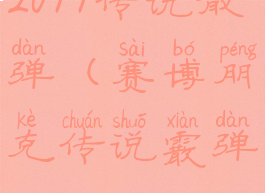 2077传说霰
dàn sài bó péng
弹（赛博朋
kè chuán shuō xiàn dàn
克传说霰弹